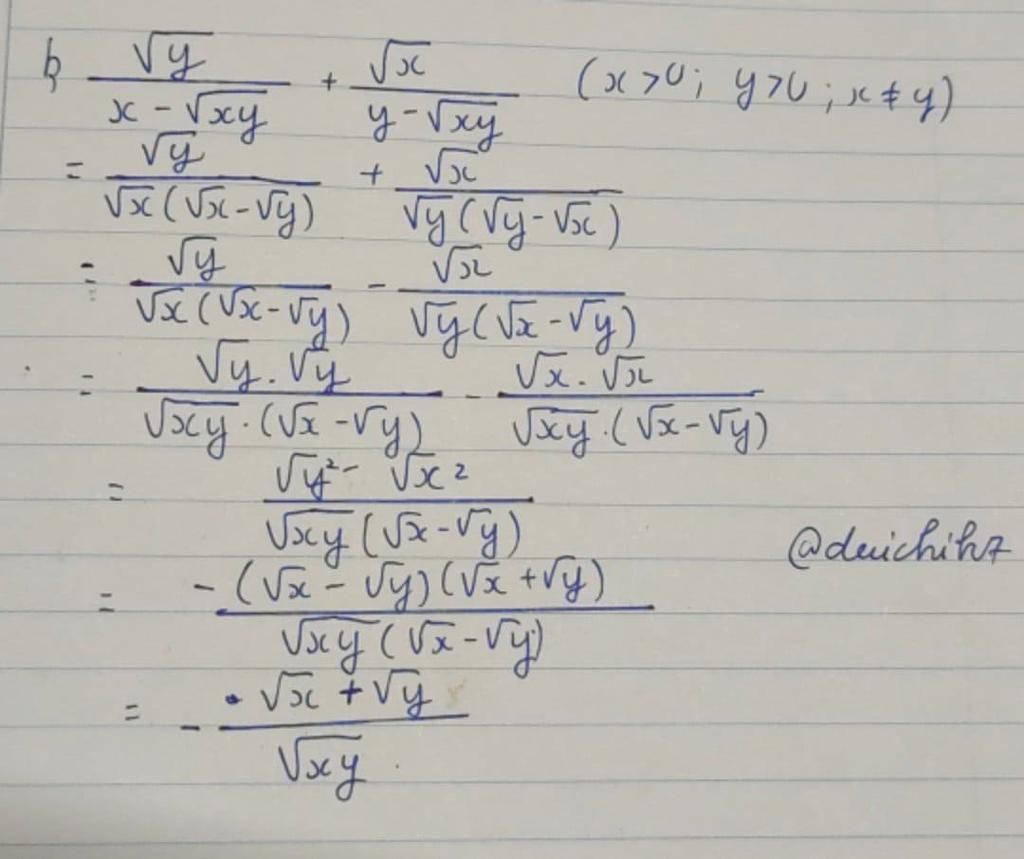 b, \frac{\sqrt{y}}{x-\sqrt{xy}} + \frac{\sqrt{x}}{y-\sqrt{xy}} (x>0; y>0; x≠y)
= \frac{\sqrt{y}}{\sqrt{x}(\sqrt{x}-\sqrt{y})} + \frac{\sqrt{x}}{\sqrt{y}(\sqrt{y}-\sqrt{x})}
= \frac{\sqrt{y}}{\sqrt{x}(\sqrt{x}-\sqrt{y})} - \frac{\sqrt{x}}{\sqrt{y}(\sqrt{x}-\sqrt{y})}
= \frac{\sqrt{y}.\sqrt{y}}{\sqrt{xy}.(\sqrt{x}-\sqrt{y})} - \frac{\sqrt{x}.\sqrt{x}}{\sqrt{xy}.(\sqrt{x}-\sqrt{y})}
= \frac{\sqrt{y}^2-\sqrt{x}^2}{\sqrt{xy}(\sqrt{x}-\sqrt{y})}
= \frac{-(\sqrt{x}-\sqrt{y})(\sqrt{x}+\sqrt{y})}{\sqrt{xy}(\sqrt{x}-\sqrt{y})}
= -\frac{\sqrt{x}+\sqrt{y}}{\sqrt{xy}}.